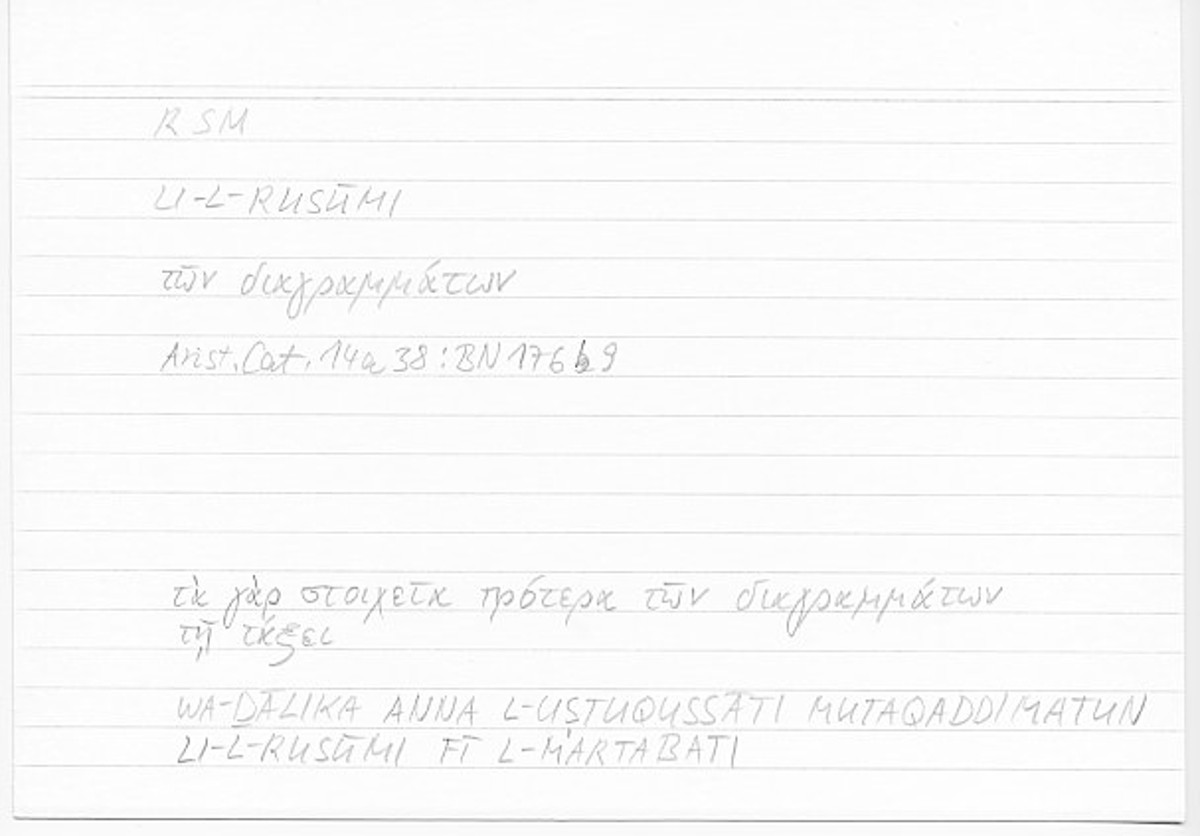 RSM
LI-L-RUSŪMI
τῶν διαγραμμάτων
Arist. Cat. 14a 38 : BN 176 b 9
τὰ γὰρ στοιχεῖα πρότερα τῶν διαγραμμάτων
τῇ τάξει
WA-ḎĀLIKA ANNA L-USṬUQUSSĀTI MUTAQADDIMATUN
LI-L-RUSŪMI FĪ L-MARTABATI